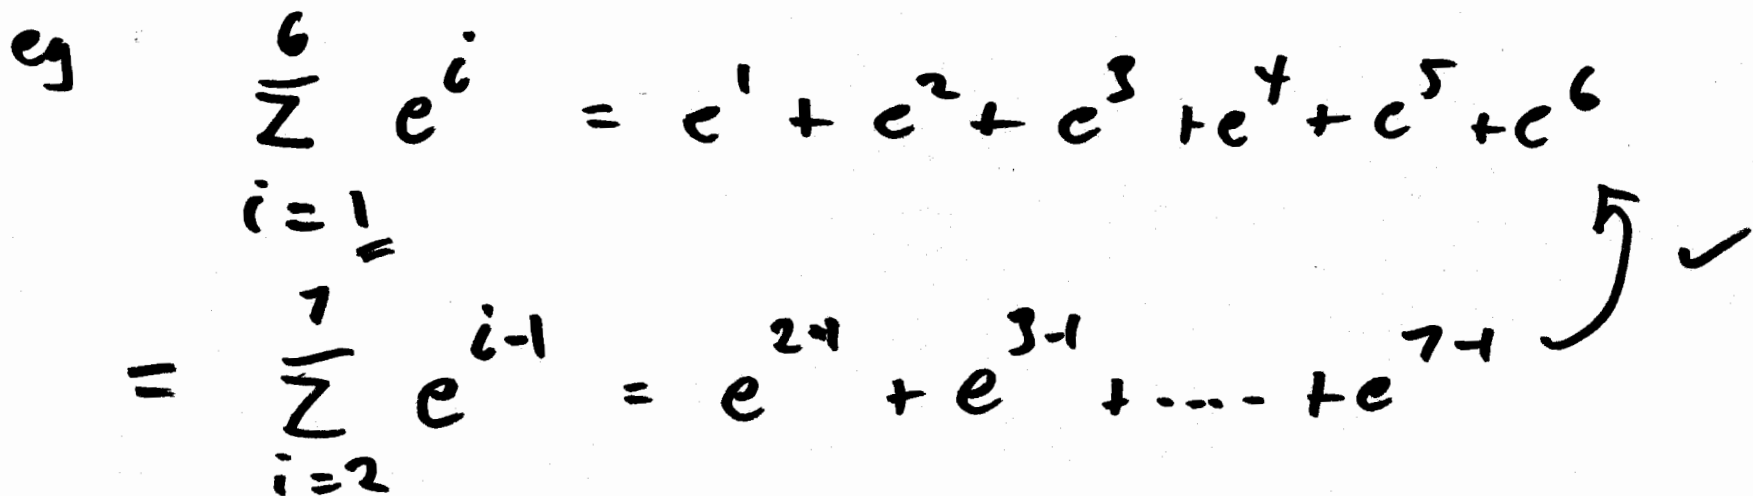 eg 6
Σ e^i = e^1 + e^2 + e^3 + e^4 + e^5 + e^6
i=1
7 ✓
= Σ e^{i-1} = e^{2-1} + e^{3-1} + .... + e^{7-1}
i=2